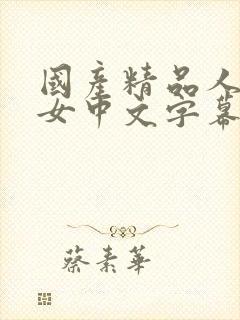 國產精品人
女中文字幕
蔡素華